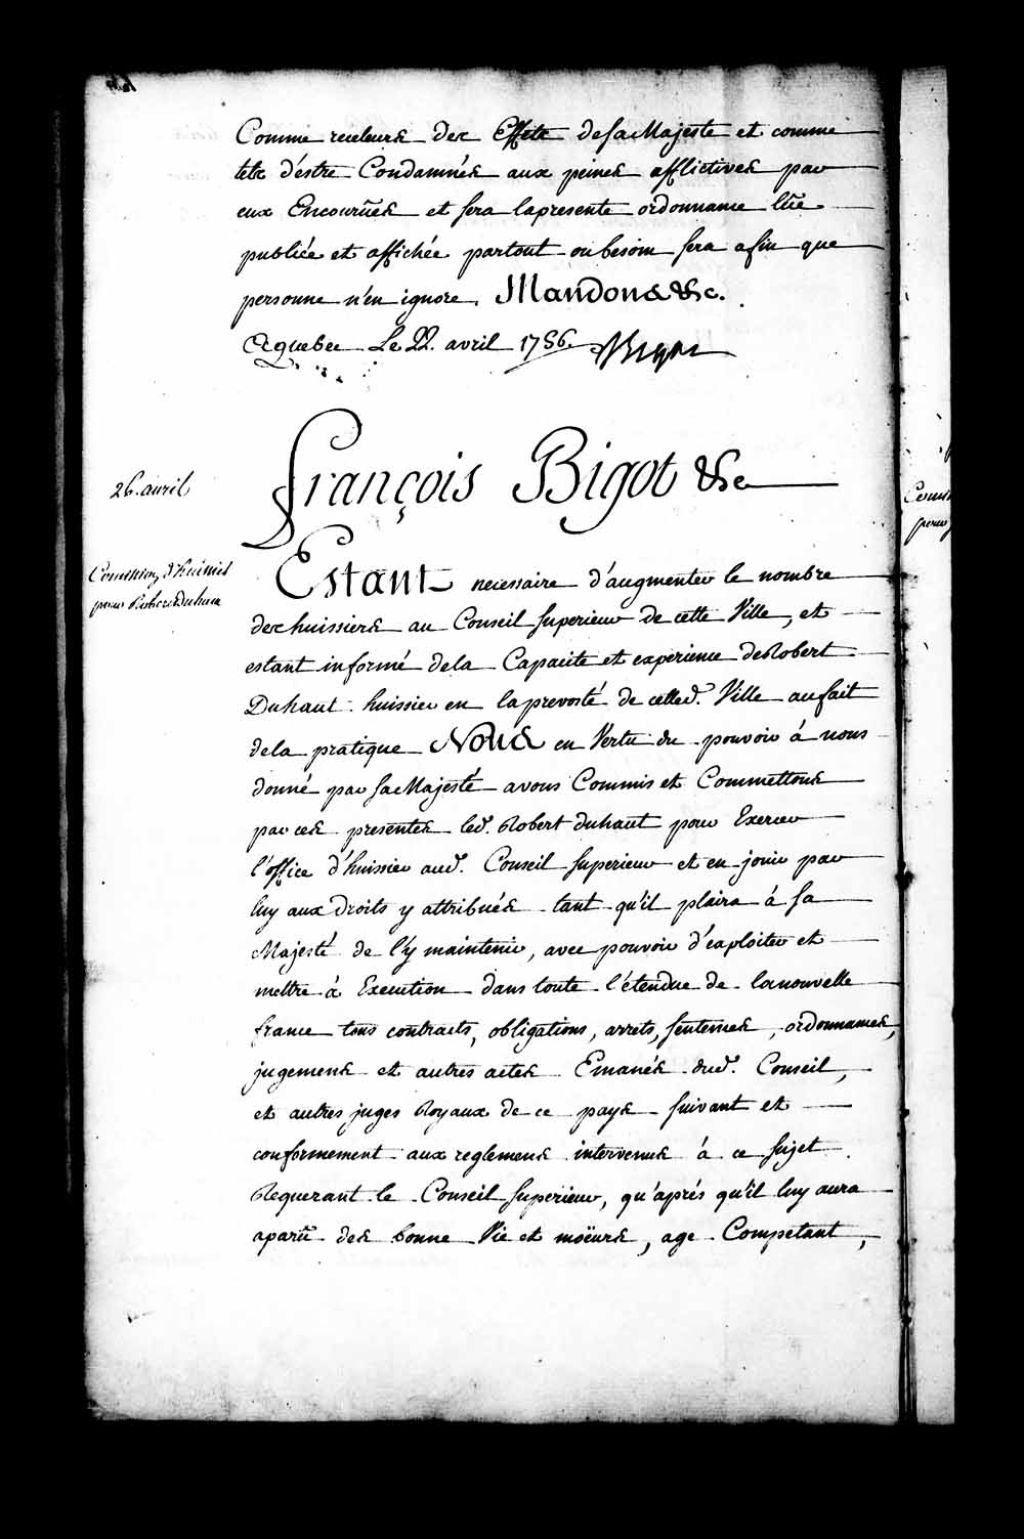 Comme receleurs des Effets de sa Majesté et comme
tels d'éstre Condamnés aux peines afflictives par
eux Encourües et sera la presente ordonnance lüe
publiée et affichée partout ou besoin sera afin que
personne n'en ignore. Mandons &c.
A quebec Le 22. avril 1756. Bigot
26. avril
François Bigot &c
Commission d'huissier
pour Robert Duhaut
Estant necessaire d'augmenter le nombre
des huissiers au Conseil Superieur de cette Ville, et
estant informé de la Capacite et experience de Robert
Duhaut huissier en la prevosté de cetted. Ville au fait
de la pratique Nous en Vertu du pouvoir á nous
donné par sa Majesté avons Commis et Commettons
par ces presentes led. Robert duhaut pour Exercer
l'office d'huissier aud. Conseil Superieur et en jouir par
luy aux Droits y attribués tant qu'il plaira á sa
Majesté de l'y maintenir, avec pouvoir d'exploiter et
mettre à Execution dans toute l'étendue de la nouvelle
france tous contracts, obligations, arrets, sentences, ordonnances,
jugemens et autres actes Emanés dud. Conseil,
et autres juges Royaux de ce pays suivant et
conformement aux reglemens intervenus á ce sujet
Requerant le Conseil Superieur, qu'aprés qu'il luy aura
aparu des bonne Vie et moeurs, age Competant,